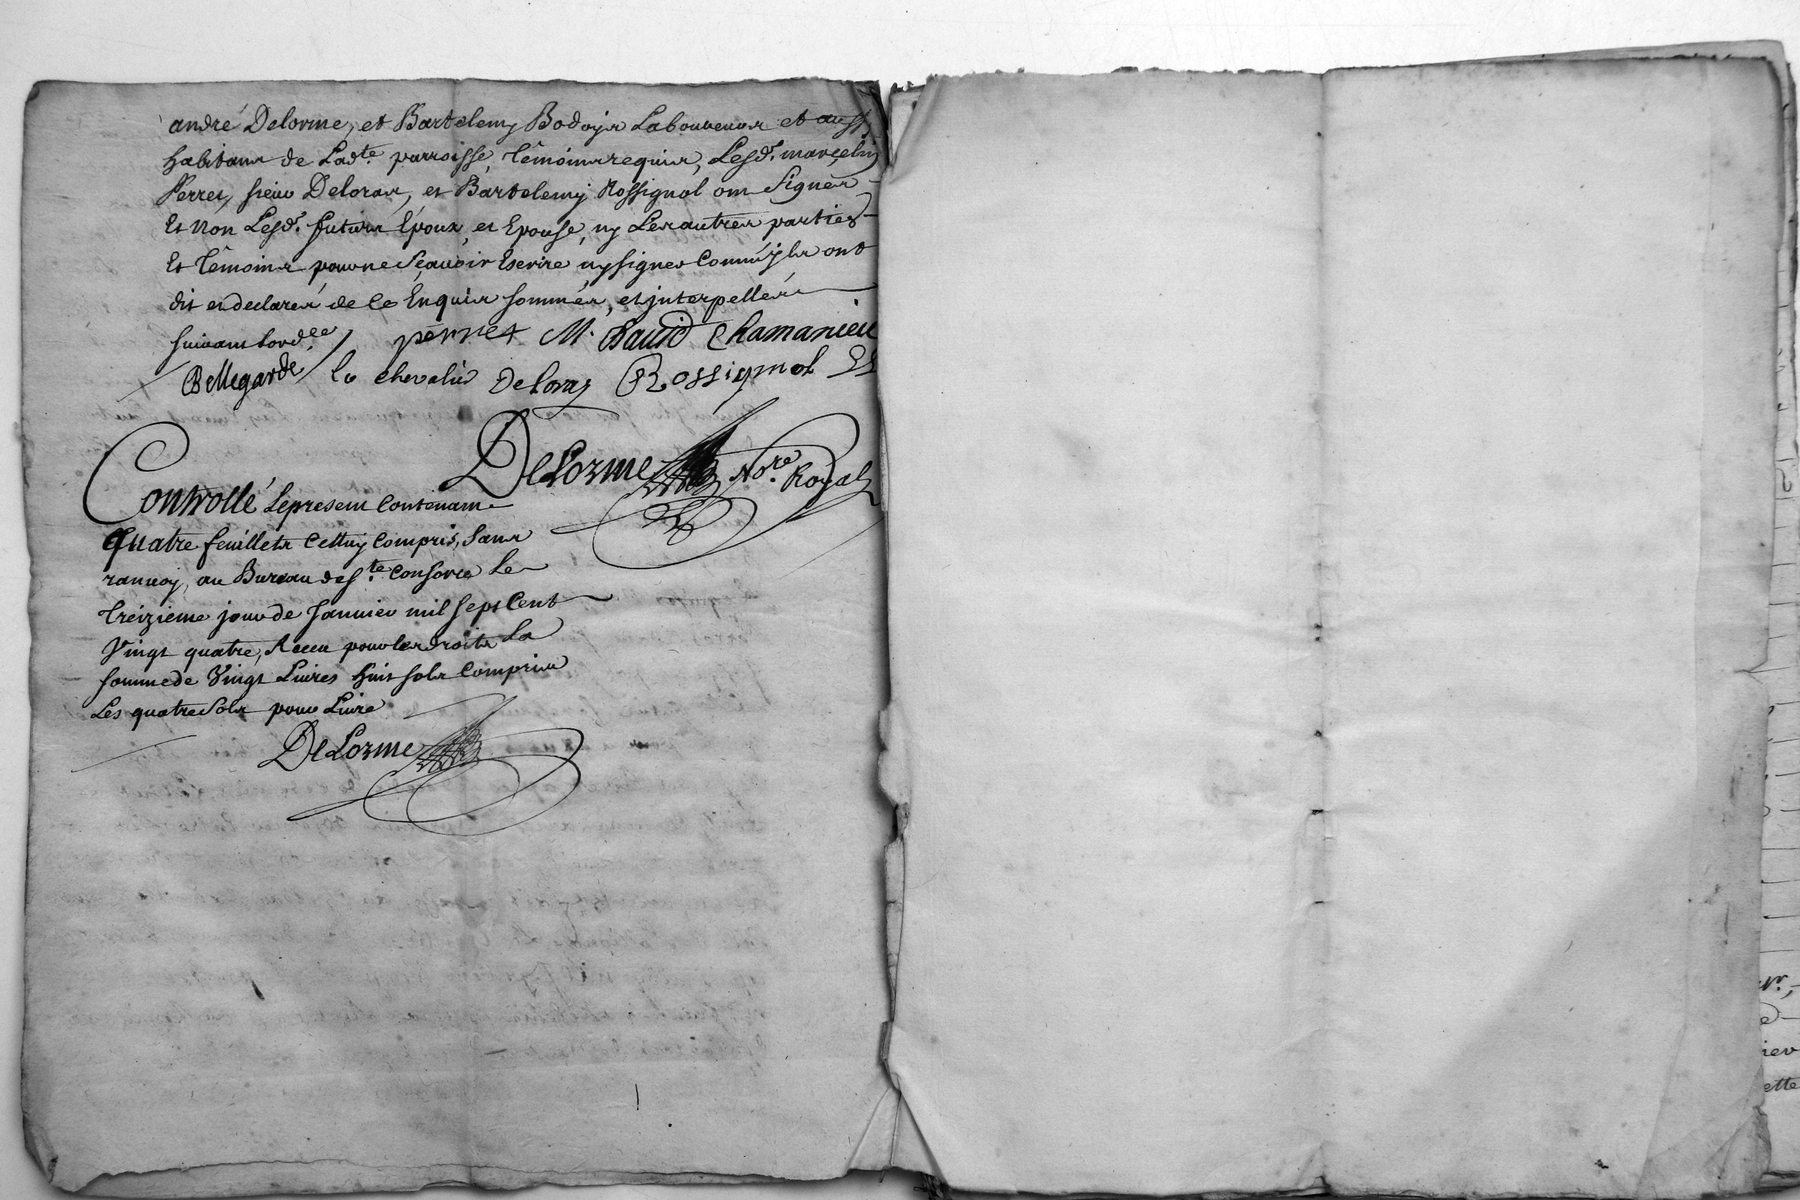 andré Delorme, et Bartelemy Bodoyr Laboureurs et aussy
habitans de Ladte parroisse, têmoins requis, Lesdt. marcelin
Perret, sieur Deloras, et Bartelemy Rossignol ont signés
Et Non Lesdt. futurs Epoux, et Epouse, ny Les autres parties
Et têmoins pour ne sçavoir Escrire ny signer comm'jls ont
dit et declarés de ce Enquis sommés, et jnterpellés
suivant Lordce
perret M. David Chamanieu
Bellegarde le chevalier Deloras Rossignol Et
DeLorme Nore. Royal
Controllé Le present Contenant
quatre feuillets Cettuy Compris, Sans
ranvoy, au Bureau de ste. Consorce Le
treizieme jour de Janvier mil sept Cent
Vingt quatre, Receu pour les droits La
somme de Vingt Livres huit sols Compris
Les quatre Sols pour Livre
DeLorme
Nr.,
e
ier
ette